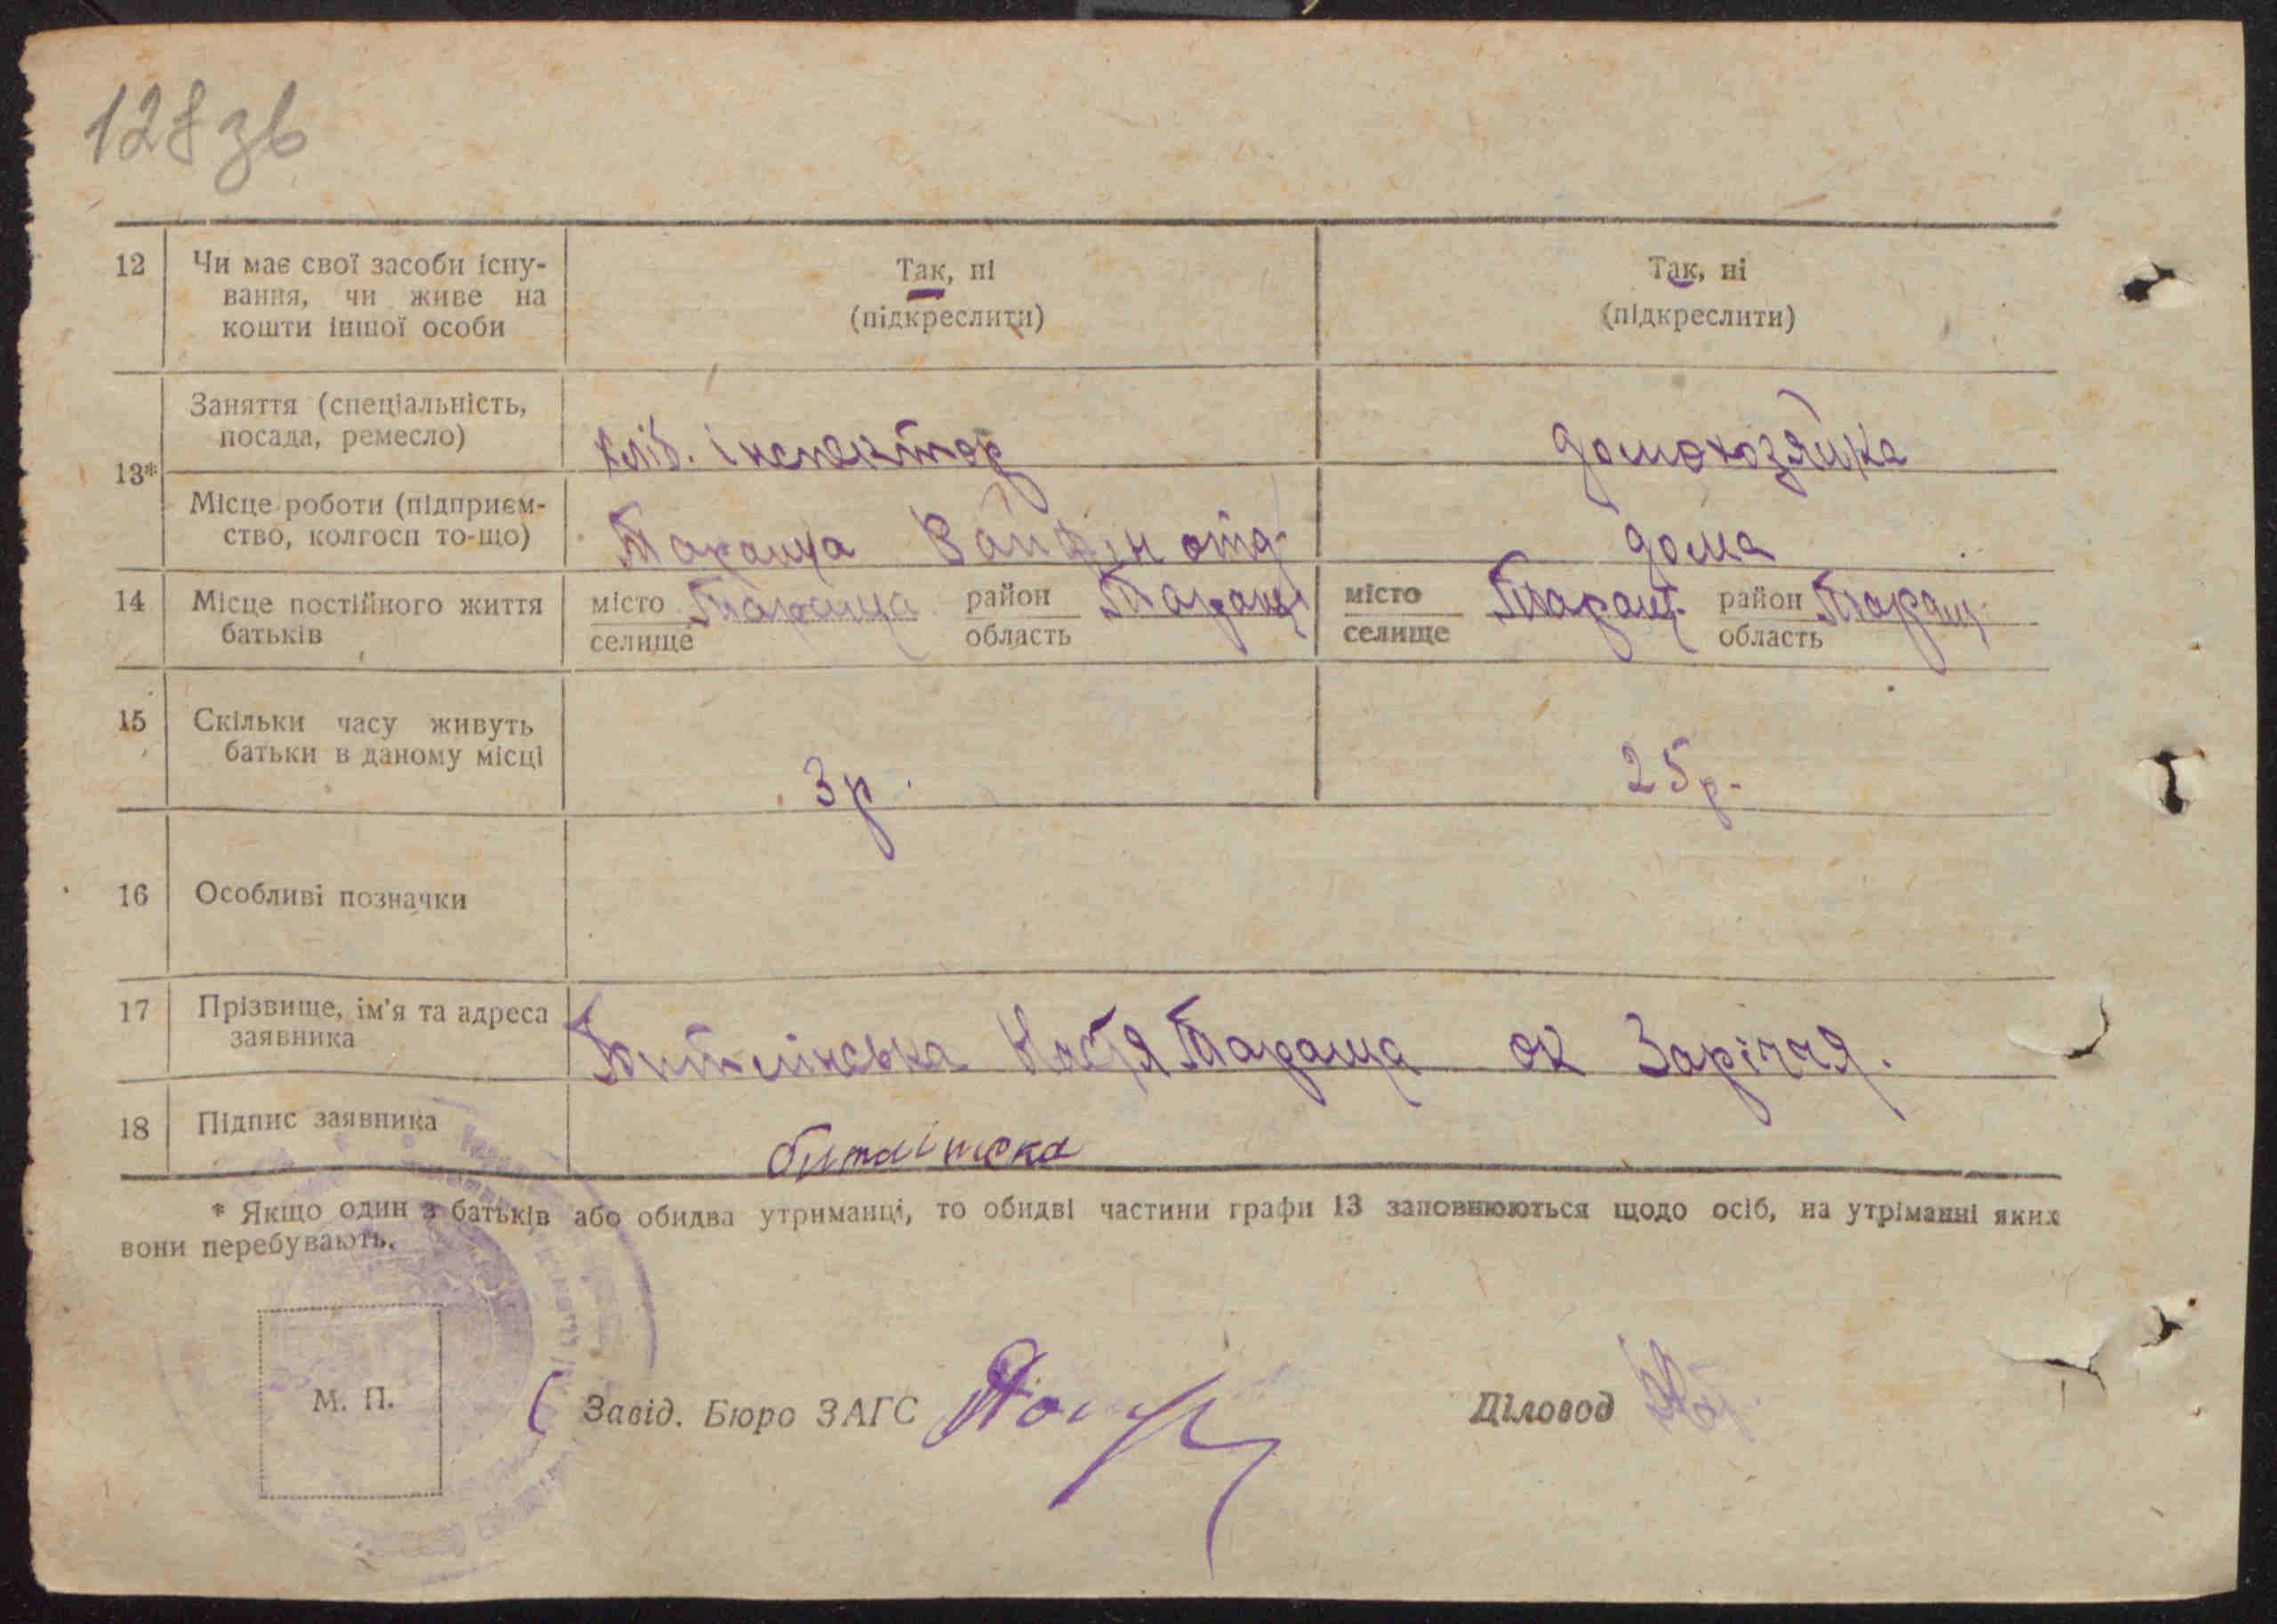 128 зв
12 Чи має свої засоби існу- Так, ні Так, ні
вання, чи живе на (підкреслити) (підкреслити)
кошти іншої особи
Заняття (спеціальність,
посада, ремесло) інспектор домохозяйка
13*
Місце роботи (підприєм-
ство, колгосп то-що) Тараща отд. дома
14 Місце постійного життя місто Тараща район Таращ місто Таращ. район Таращ.
батьків селище область селище область
15 Скільки часу живуть
батьки в даному місці 3 р. 25 р.
16 Особливі позначки
17 Прізвище, ім'я та адреса
заявника Настя Тараща ок Заріччя.
18 Підпис заявника
* Якщо один з батьків або обидва утриманці, то обидві частини графи 13 заповнюються щодо осіб, на утріманні яких
вони перебувають.
М. П. Завід. Бюро ЗАГС Діловод